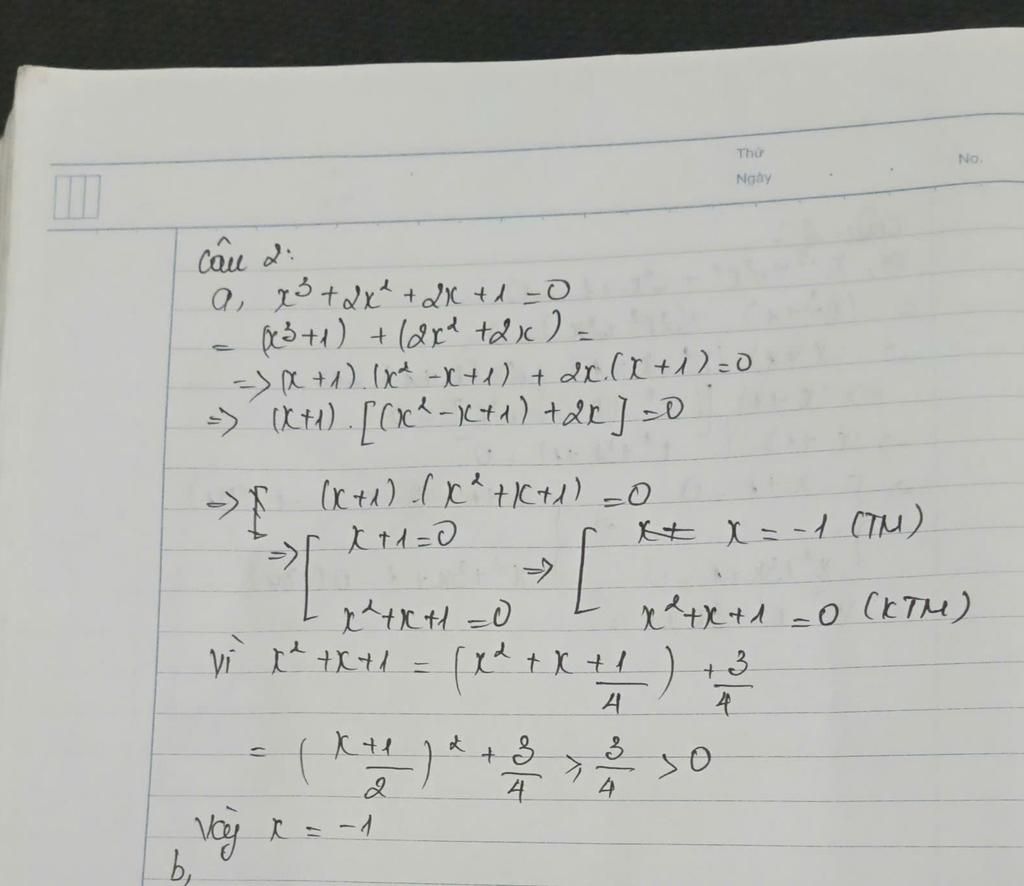 Thứ
Ngày
No.
Câu 2:
a, x³ + 2x² + 2x + 1 = 0
= (x³+1) + (2x² + 2x) =
=> (x+1).(x² - x+1) + 2x.(x+1) = 0
=> (x+1).[(x² - x+1) + 2x] = 0
=> [ (x+1).(x² + x+1) = 0
=> [ x+1 = 0 => [ x = -1 (TM)
x² + x+1 = 0 x² + x+1 = 0 (KTM)
Vì x² + x+1 = (x² + x + 1/4) + 3/4
= (x + 1/2)² + 3/4 ≥ 3/4 > 0
Vậy x = -1
b,